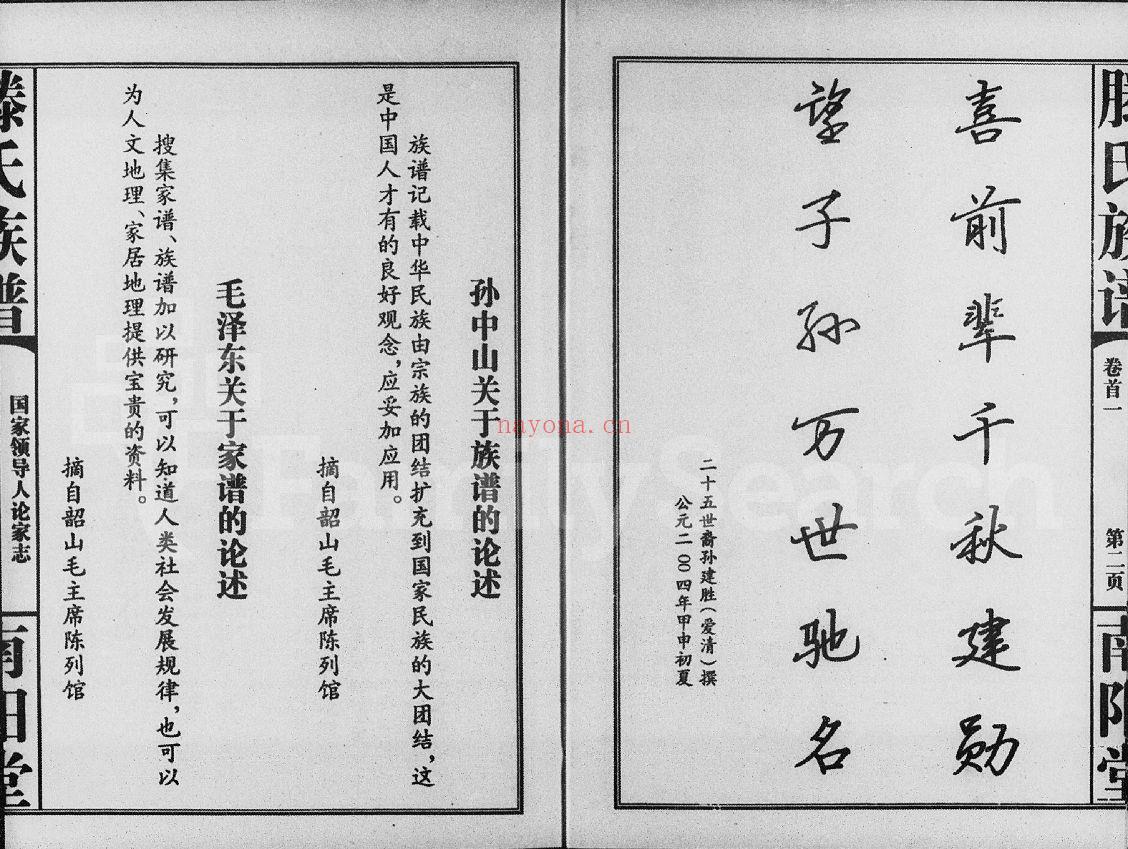 滕氏族谱
卷首一
第二页
南阳堂
喜前辈千秋建勋
望子孙万世驰名
二十五世裔孙建胜（爱清）撰
公元二〇〇四年甲申初夏
孙中山关于族谱的论述
族谱记载中华民族由宗族的团结扩充到国家民族的大团结，这
是中国人才有的良好观念，应妥加应用。
摘自韶山毛主席陈列馆
毛泽东关于家谱的论述
搜集家谱、族谱加以研究，可以知道人类社会发展规律，也可以
为人文地理、家居地理提供宝贵的资料。
摘自韶山毛主席陈列馆
滕氏族谱
国家领导人论家志
南阳堂
nayona.cn
FamilySearch